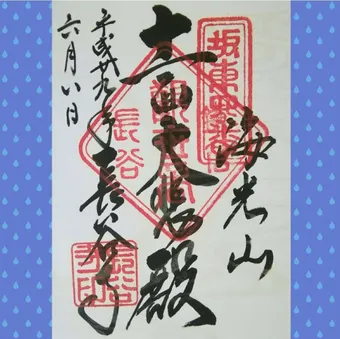 海光山
十一面大悲殿
長谷寺
平成廿九年
六月八日
坂東四番
長谷